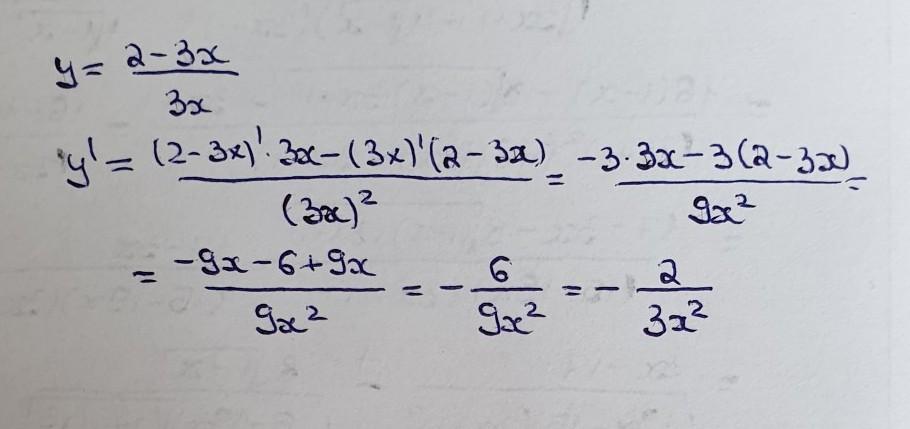 y = (2 - 3x) / (3x)
y' = ((2 - 3x)' · 3x - (3x)' (2 - 3x)) / (3x)² = (-3 · 3x - 3(2 - 3x)) / (9x²) =
= (-9x - 6 + 9x) / (9x²) = - 6 / (9x²) = - 2 / (3x²)